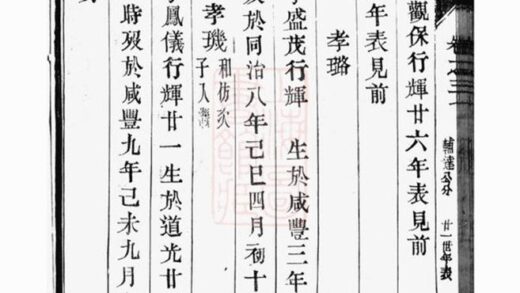 卷之三
輔達公分 廿一世年表
觀保行輝廿六年表見前
年表見前
孝璐
字盛茂行輝 生於咸豐三年
歿於同治八年己巳四月初十
孝璣和仿次子入
字鳳儀行輝廿一生於道光廿
時歿於咸豐九年己未九月